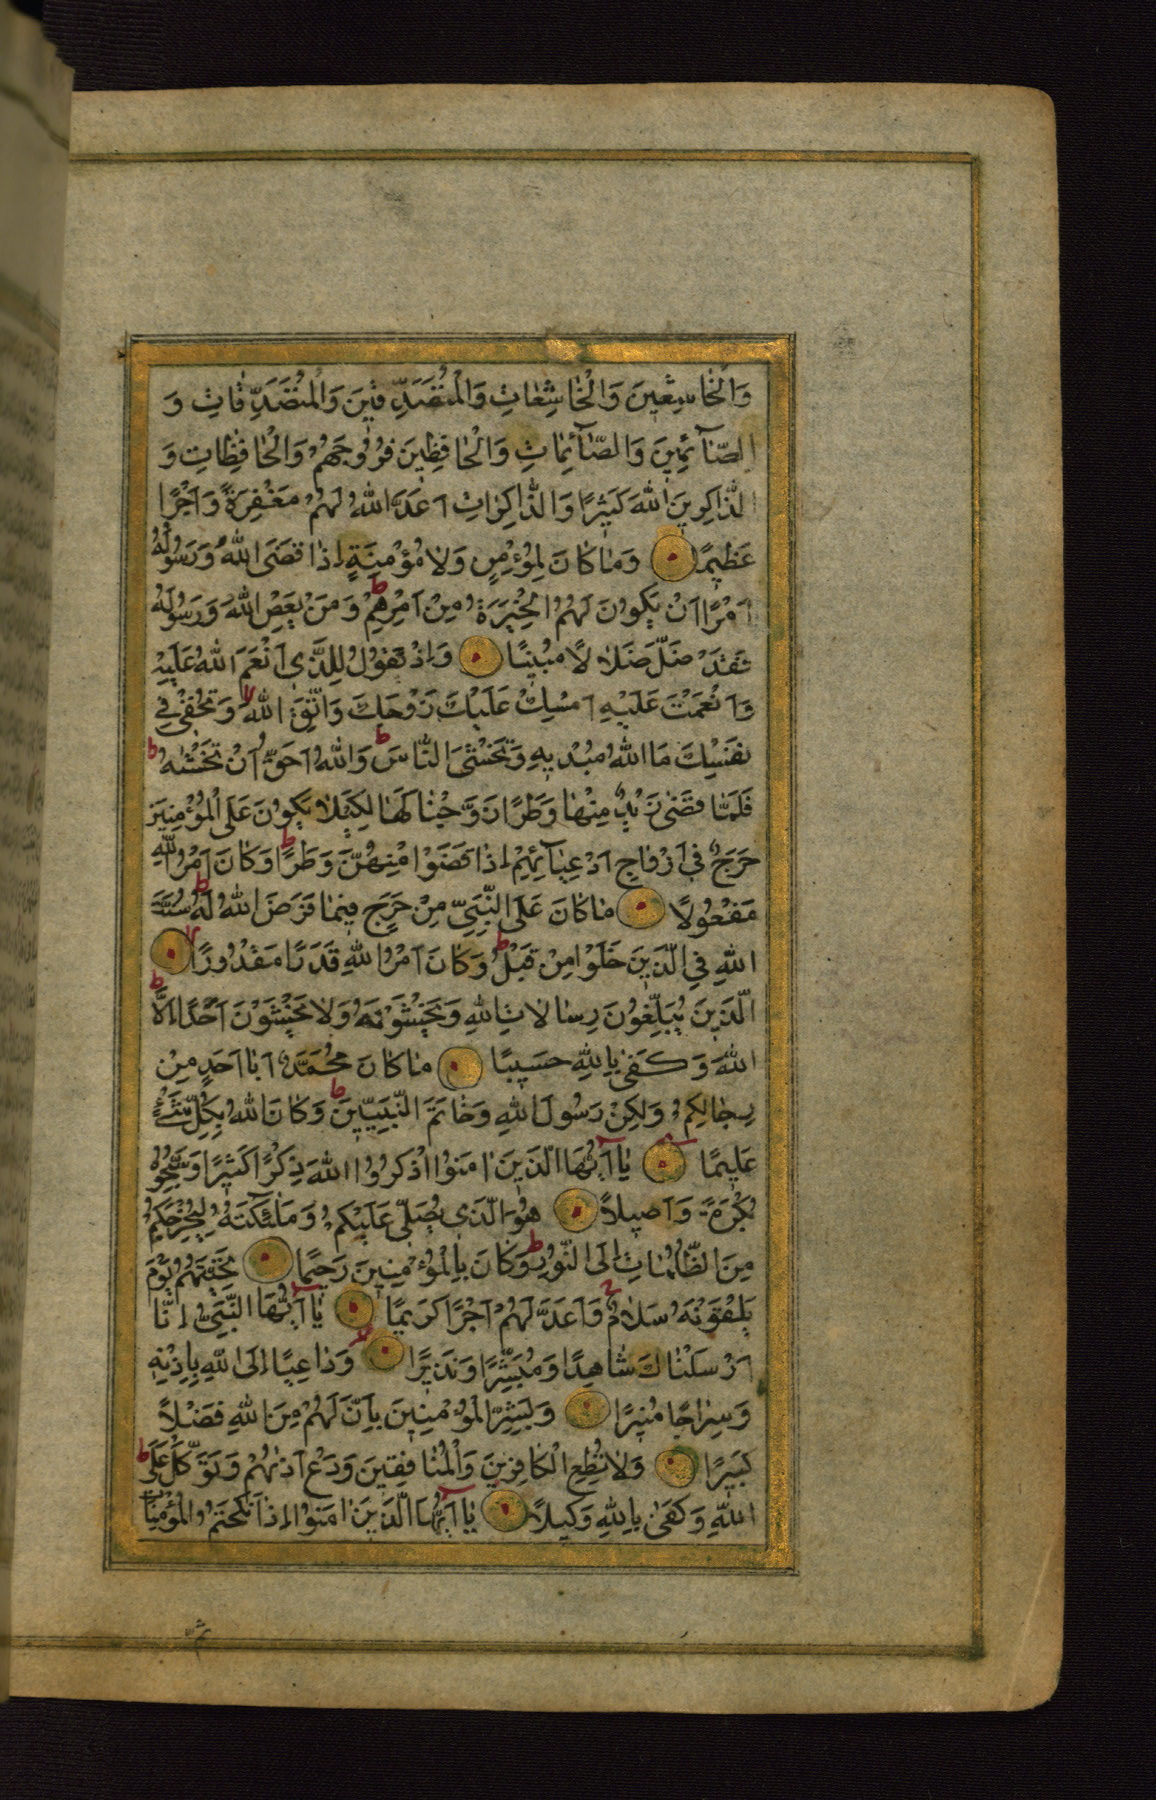 وَالْخَاشِعِينَ وَالْخَاشِعَاتِ وَالْمُتَصَدِّقِينَ وَالْمُتَصَدِّقَاتِ وَ
الصَّآئِمِينَ وَالصَّآئِمَاتِ وَالْحَافِظِينَ فُرُوجَهُمْ وَالْحَافِظَاتِ وَ
الذَّاكِرِينَ اللَّهَ كَثِيرًا وَالذَّاكِرَاتِ اَعَدَّ اللَّهُ لَهُمْ مَغْفِرَةً وَاَجْرًا
عَظِيمًا وَمَا كَانَ لِمُؤْمِنٍ وَلَا مُؤْمِنَةٍ اِذَا قَضَى اللَّهُ وَرَسُولُهُ
اَمْرًا اَنْ يَكُونَ لَهُمُ الْخِيَرَةُ مِنْ اَمْرِهِمْ ط وَمَنْ يَعْصِ اللَّهَ وَرَسُولَهُ
فَقَدْ ضَلَّ ضَلَالًا مُبِينًا وَاِذْ تَقُولُ لِلَّذِي اَنْعَمَ اللَّهُ عَلَيْهِ
وَاَنْعَمْتَ عَلَيْهِ اَمْسِكْ عَلَيْكَ زَوْجَكَ وَاتَّقِ اللَّهَ لا وَتُخْفِي فِي
نَفْسِكَ مَا اللَّهُ مُبْدِيهِ وَتَخْشَى النَّاسَ ط وَاللَّهُ اَحَقُّ اَنْ تَخْشٰهُ ط
فَلَمَّا قَضٰى زَيْدٌ مِنْهَا وَطَرًا زَوَّجْنَاكَهَا لِكَيْلَا يَكُونَ عَلَى الْمُؤْمِنِينَ
حَرَجٌ فِي اَزْوَاجِ اَدْعِيَآئِهِمْ اِذَا قَضَوْا مِنْهُنَّ وَطَرًا ط وَكَانَ اَمْرُ اللَّهِ
مَفْعُولًا مَا كَانَ عَلَى النَّبِيِّ مِنْ حَرَجٍ فِيمَا فَرَضَ اللَّهُ لَهُ ط سُنَّةَ
اللَّهِ فِي الَّذِينَ خَلَوْا مِنْ قَبْلُ ط وَكَانَ اَمْرُ اللَّهِ قَدَرًا مَقْدُورًا لا
الَّذِينَ يُبَلِّغُونَ رِسَالَاتِ اللَّهِ وَيَخْشَوْنَهُ وَلَا يَخْشَوْنَ اَحَدًا اِلَّا ط
اللَّهَ وَكَفٰى بِاللَّهِ حَسِيبًا مَا كَانَ مُحَمَّدٌ اَبَا اَحَدٍ مِنْ
رِجَالِكُمْ وَلٰكِنْ رَسُولَ اللَّهِ وَخَاتَمَ النَّبِيِّينَ ط وَكَانَ اللَّهُ بِكُلِّ شَيْءٍ
عَلِيمًا يَآ اَيُّهَا الَّذِينَ اٰمَنُوا اذْكُرُوا اللَّهَ ذِكْرًا كَثِيرًا وَسَبِّحُوهُ
بُكْرَةً وَاَصِيلًا هُوَ الَّذِي يُصَلِّي عَلَيْكُمْ وَمَلٰٓئِكَتُهُ لِيُخْرِجَكُمْ
مِنَ الظُّلُمَاتِ اِلَى النُّورِ ط وَكَانَ بِالْمُؤْمِنِينَ رَحِيمًا تَحِيَّتُهُمْ يَوْمَ
يَلْقَوْنَهُ سَلَامٌ وَاَعَدَّ لَهُمْ اَجْرًا كَرِيمًا يَآ اَيُّهَا النَّبِيُّ اِنَّا
اَرْسَلْنَاكَ شَاهِدًا وَمُبَشِّرًا وَنَذِيرًا لا وَدَاعِيًا اِلَى اللَّهِ بِاِذْنِهِ
وَسِرَاجًا مُنِيرًا وَبَشِّرِ الْمُؤْمِنِينَ بِاَنَّ لَهُمْ مِنَ اللَّهِ فَضْلًا
كَبِيرًا وَلَا تُطِعِ الْكَافِرِينَ وَالْمُنَافِقِينَ وَدَعْ اَذٰىهُمْ وَتَوَكَّلْ عَلَى ط
اللَّهِ وَكَفٰى بِاللَّهِ وَكِيلًا يَآ اَيُّهَا الَّذِينَ اٰمَنُوا اِذَا نَكَحْتُمُ الْمُؤْمِنَاتِ
ثُمَّ